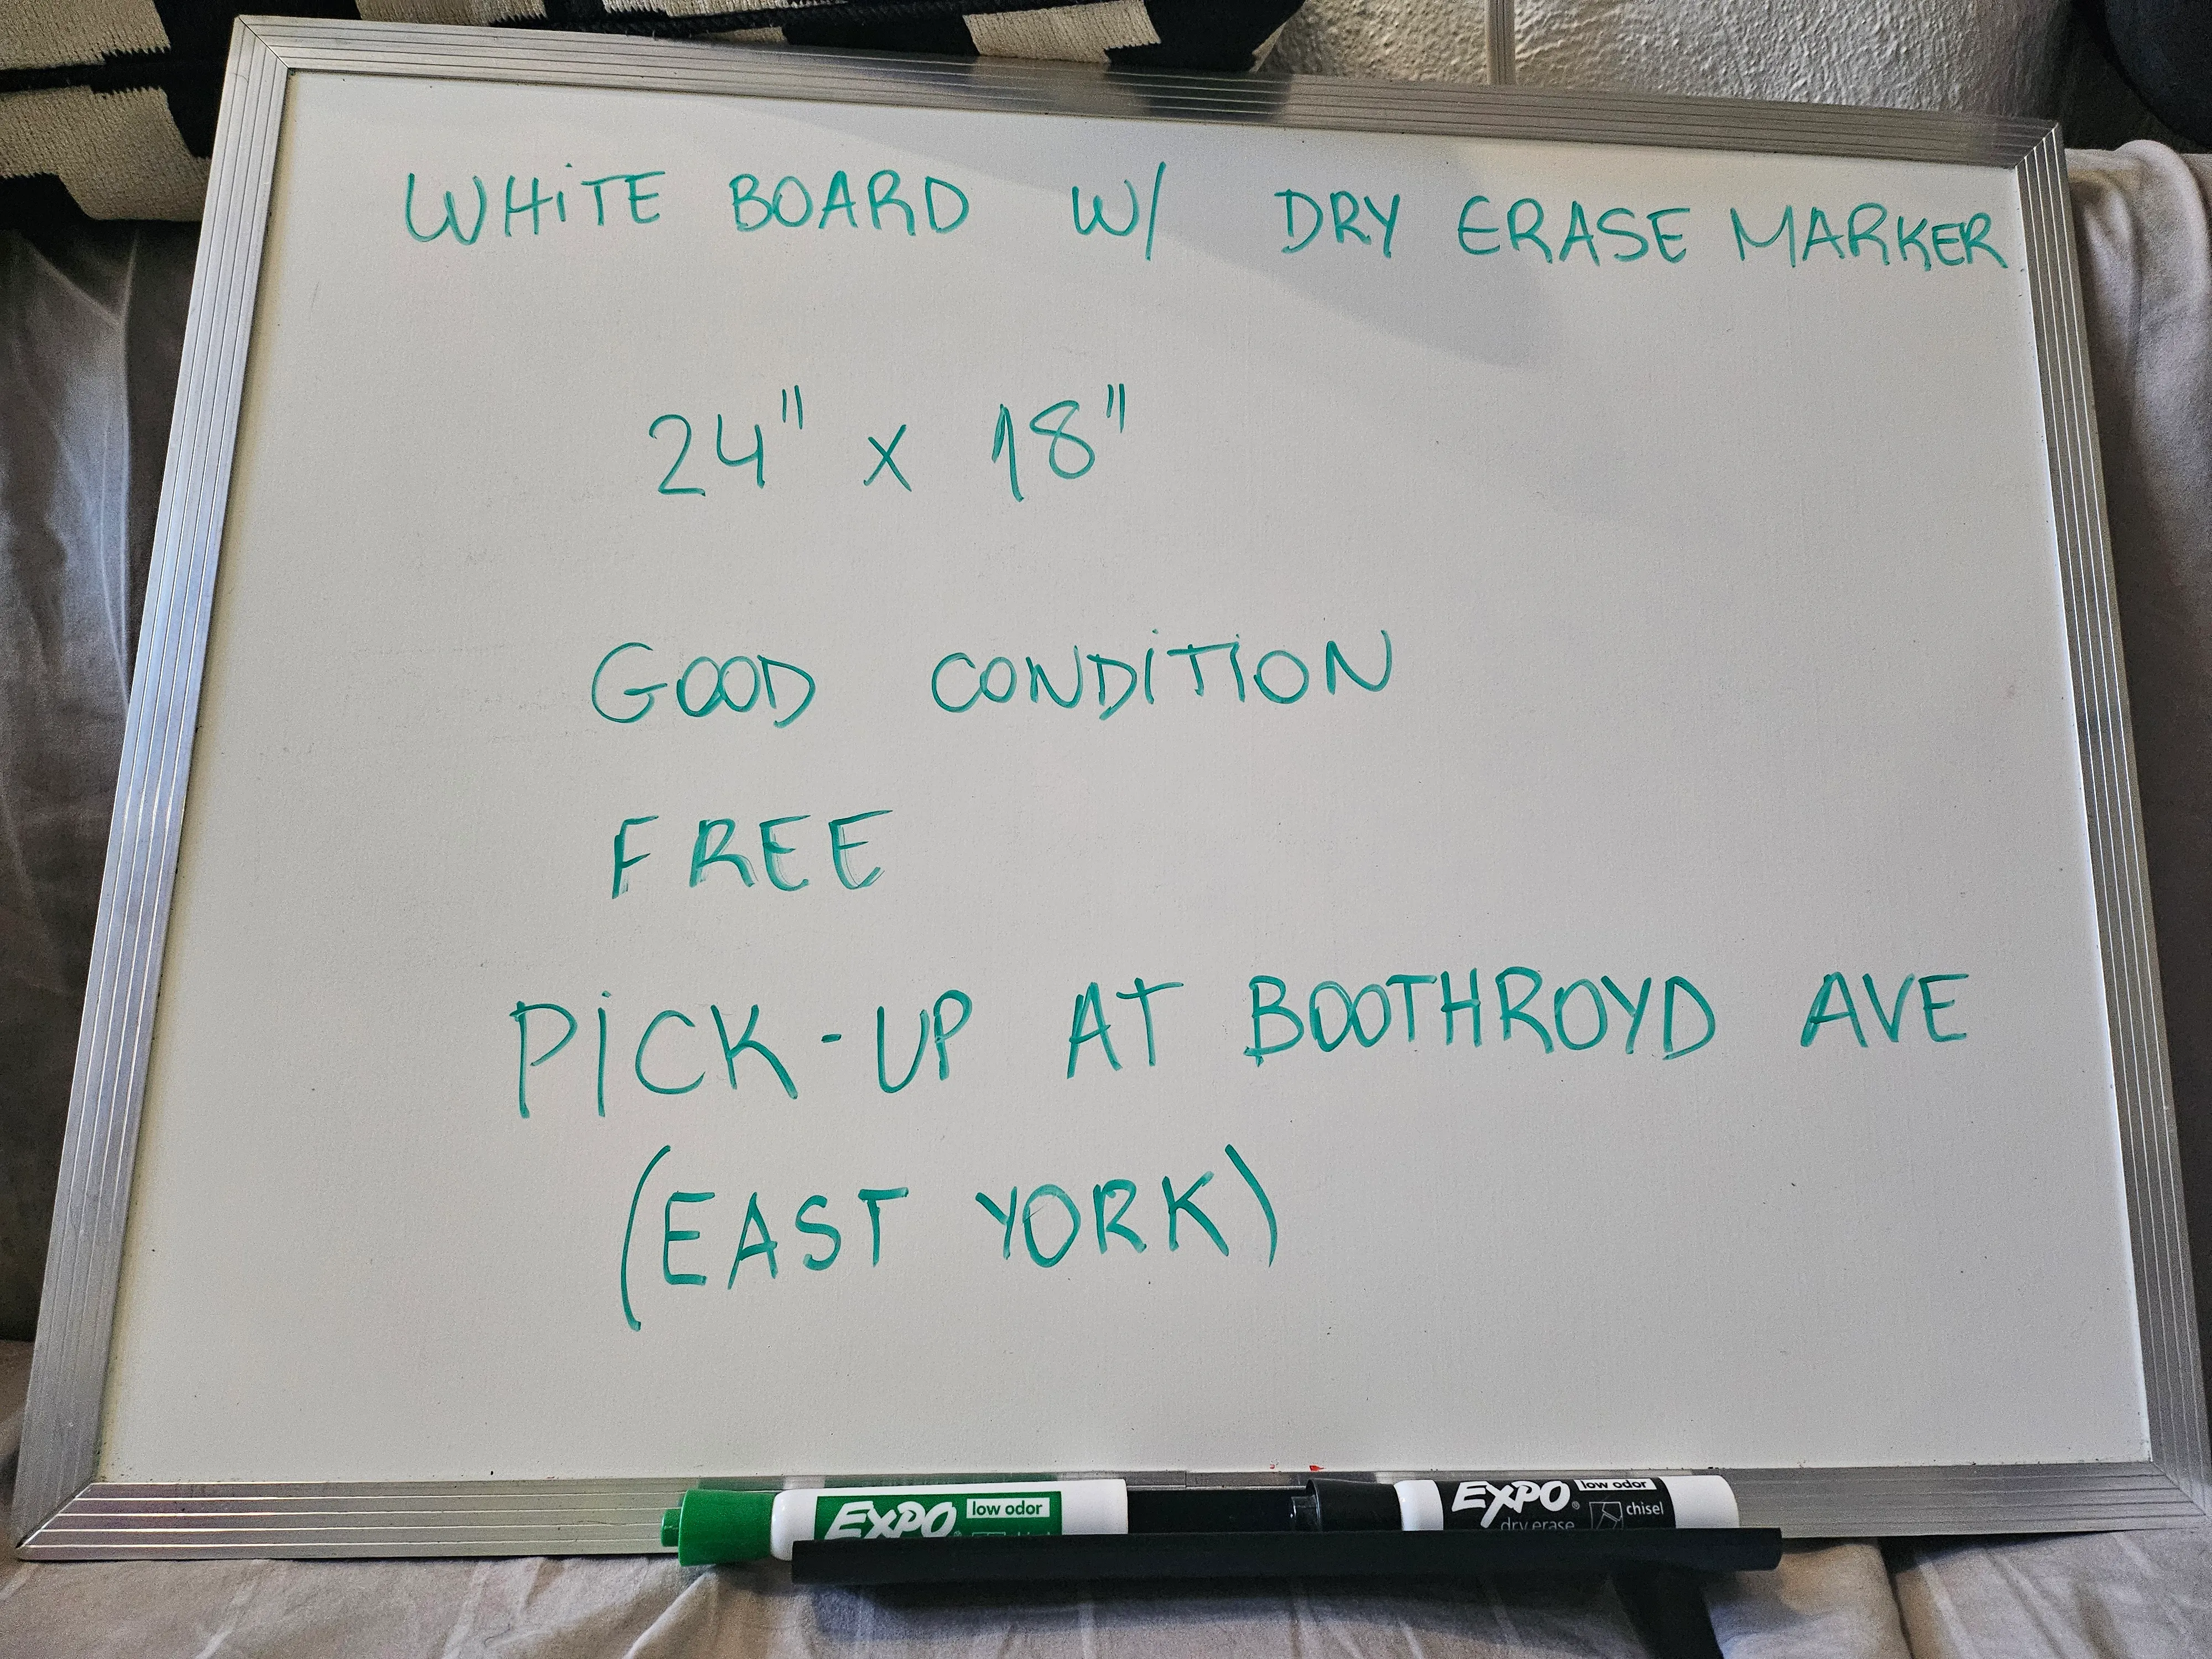 WHiTE BOARD W/ DRY ERASE MARKER
24" x 18"
GOOD CONDiTiON
FREE
PiCK-UP AT BOOTHROYD AVE
(EAST YORK)
EXPO® low odor
EXPO® low odor
chisel
dry erase